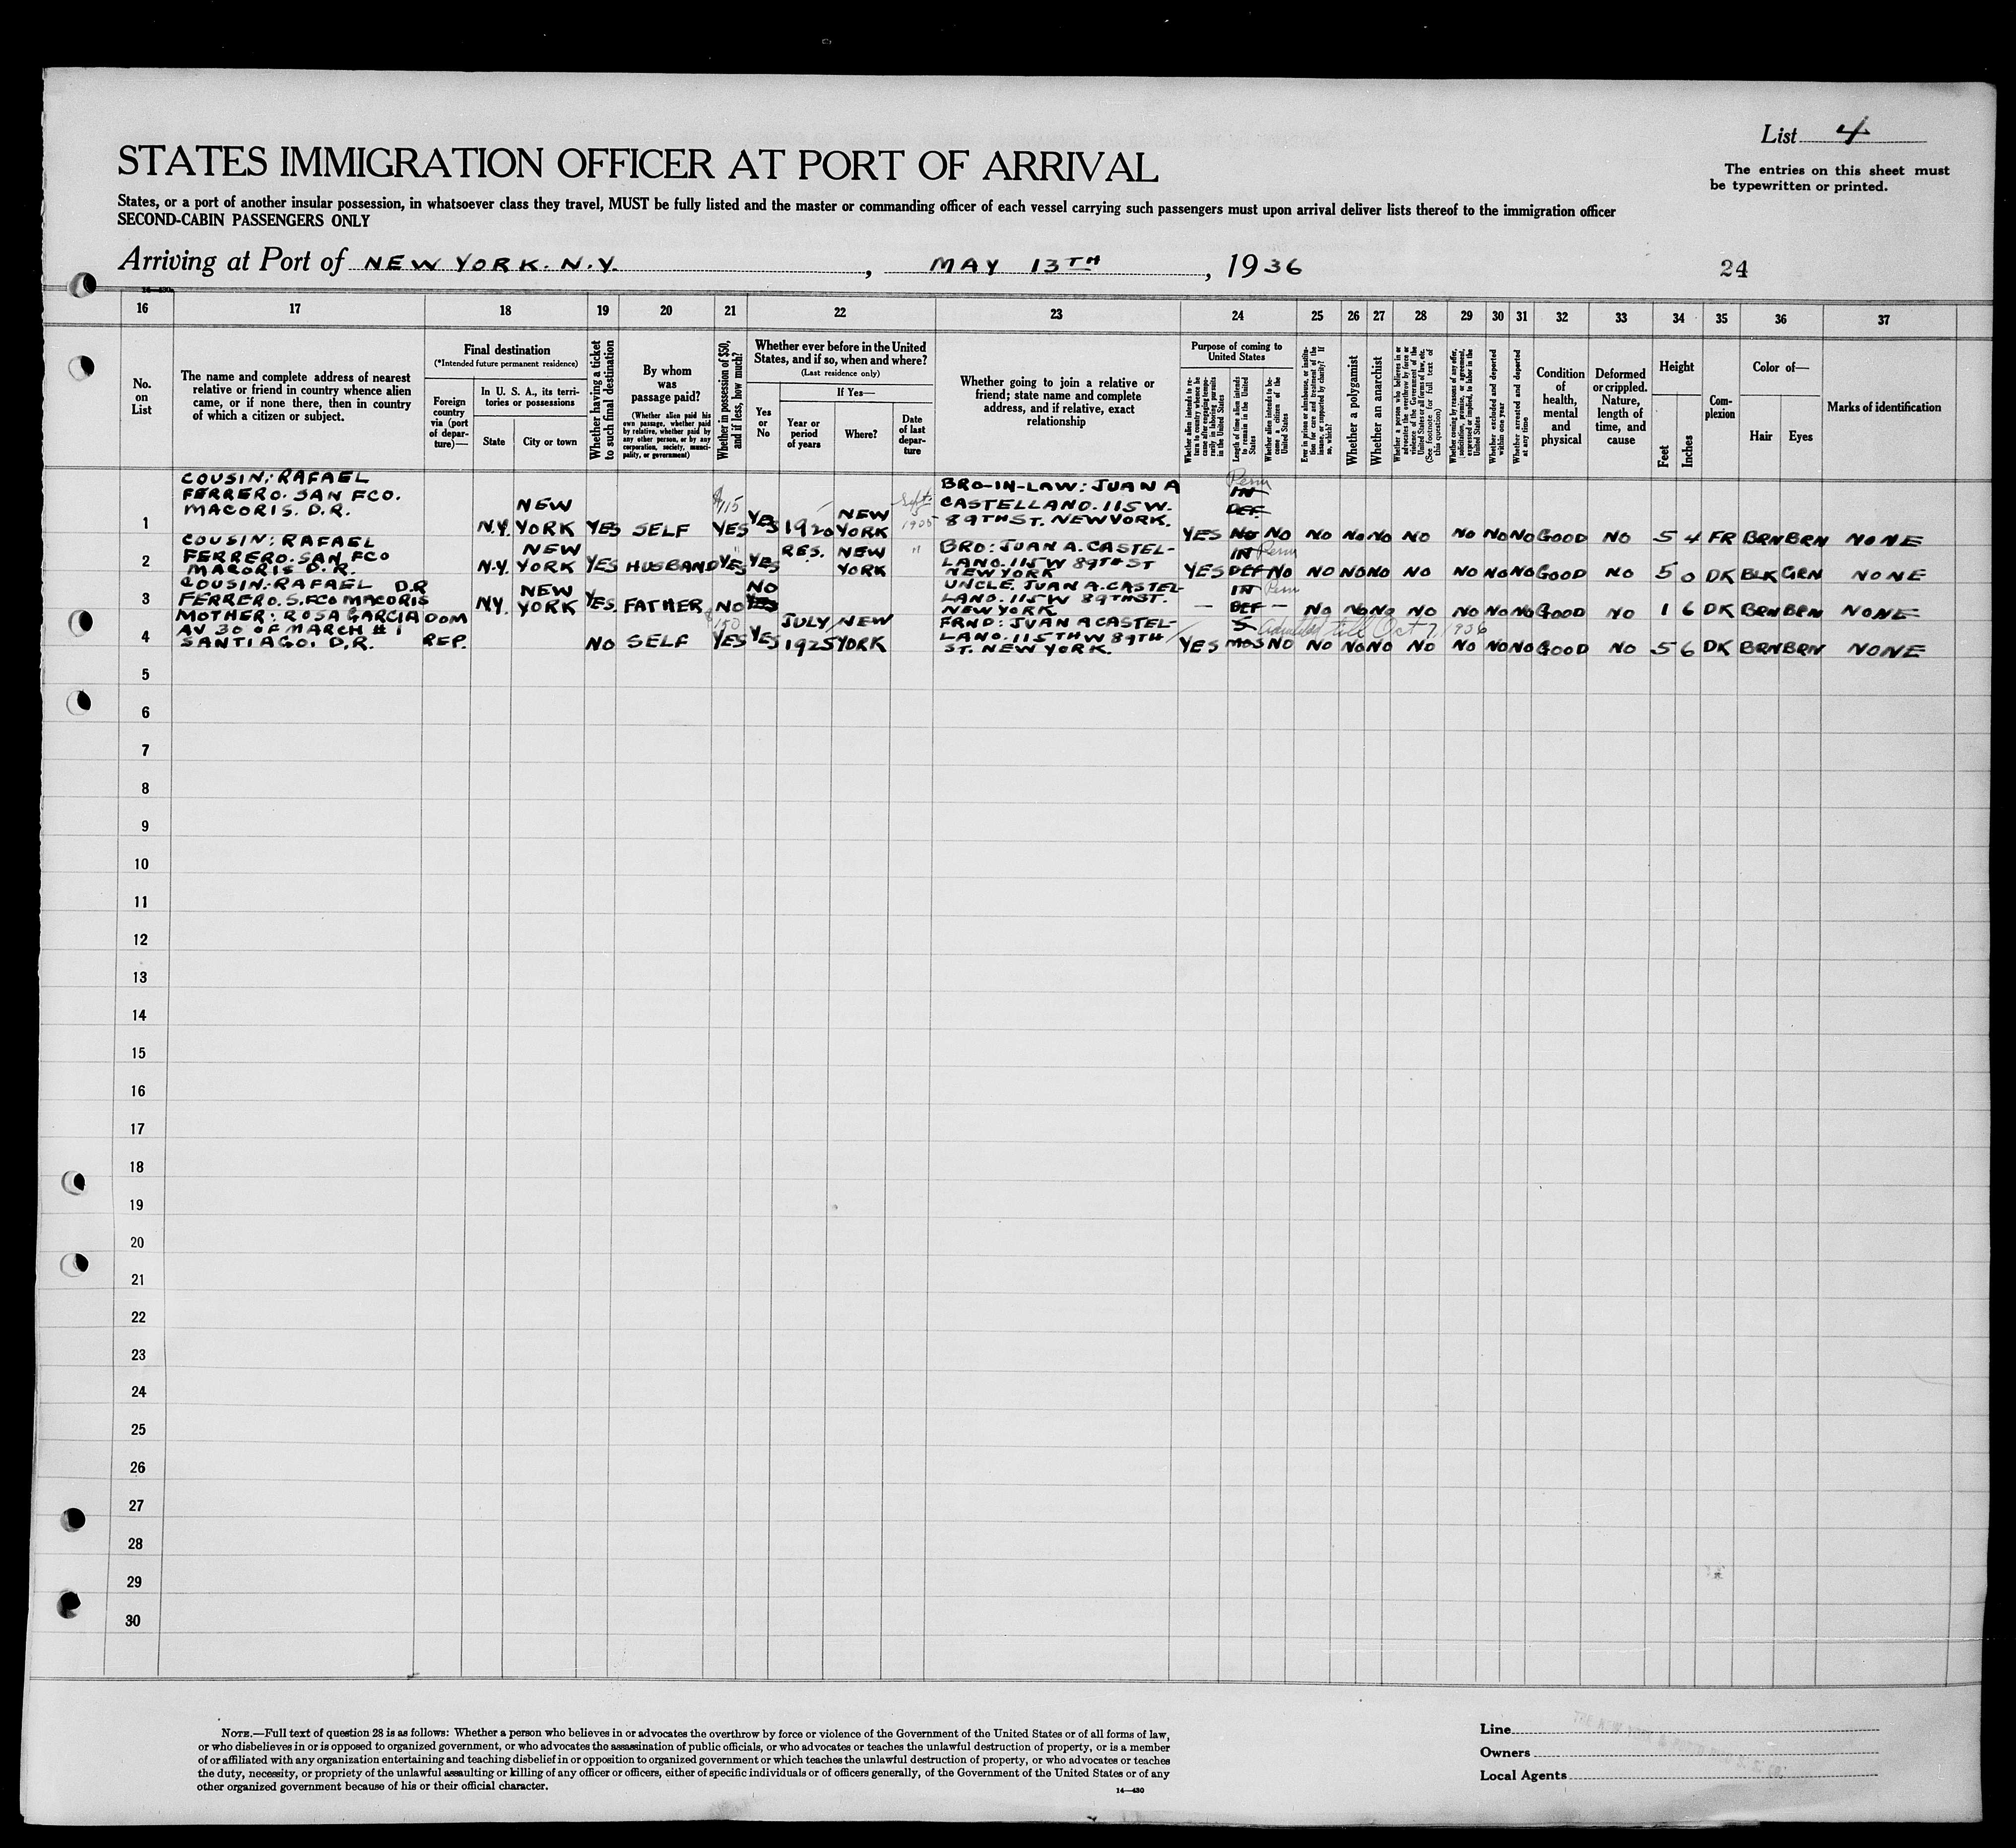 List 4
STATES IMMIGRATION OFFICER AT PORT OF ARRIVAL
The entries on this sheet must
be typewritten or printed.
States, or a port of another insular possession, in whatsoever class they travel, MUST be fully listed and the master or commanding officer of each vessel carrying such passengers must upon arrival deliver lists thereof to the immigration officer
SECOND-CABIN PASSENGERS ONLY
Arriving at Port of NEW YORK. N.Y. , MAY 13TH , 1936
24
16 17 18 19 20 21 22 23 24 25 26 27 28 29 30 31 32 33 34 35 36 37
No.
on
List
The name and complete address of nearest
relative or friend in country whence alien
came, or if none there, then in country
of which a citizen or subject.
Final destination
(*Intended future permanent residence)
Foreign
country
via (port
of depar-
ture)—
In U. S. A., its terri-
tories or possessions
State
City or town
Whether having a ticket
to such final destination
By whom
was
passage paid?
(Whether alien paid his
own passage, whether paid
by relative, whether paid by
any other person, or by any
corporation, society, munci-
pality, or government)
Whether in possession of $50,
and if less, how much?
Whether ever before in the United
States, and if so, when and where?
(Last residence only)
Yes
or
No
If Yes—
Year or
period
of years
Where?
Date
of last
depar-
ture
Whether going to join a relative or
friend; state name and complete
address, and if relative, exact
relationship
Purpose of coming to
United States
Whether alien intends to re-
turn to country whence he
came after engaging tempo-
rarily in laboring pursuits
in the United States
Length of time alien intends
to remain in the United
States
Whether alien intends to be-
come a citizen of the
United States
Ever in prison or almshouse, or institu-
tion for care and treatment of the
insane, or supported by charity? If
so, which?
Whether a polygamist
Whether an anarchist
Whether a person who believes in or
advocates the overthrow by force or
violence of the Government of the
United States or all forms of law, etc.
(See footnote for full text of
this question)
Whether coming by reasons of any offer,
solicitation, promise, or agreement,
expressed or implied, to labor in the
United States
Whether excluded and deported
within one year
Whether arrested and deported
at any time
Condition
of
health,
mental
and
physical
Deformed
or crippled.
Nature,
length of
time, and
cause
Height
Feet
Inches
Com-
plexion
Color of—
Hair
Eyes
Marks of identification
COUSIN: RAFAEL
FERRERO. SAN FCO.
MACORIS. D.R.
1 N.Y. NEW YORK YES SELF $115 YES YES 1920 NEW YORK Sept. BRO-IN-LAW: JUAN A
CASTELLANO. 115 W.
89TH ST. NEW YORK.
YES Perm IN DEF. NO NO NO NO NO NO NO NO NO GOOD NO 5 4 FR BRN BRN NONE
COUSIN: RAFAEL
FERRERO. SAN FCO
MACORIS D.R.
2 N.Y. NEW YORK YES HUSBAND YES YES RES. NEW YORK " BRO: JUAN A. CASTEL-
LANO. 115 W 89TH ST
NEW YORK
YES IN DEF Perm NO NO NO NO NO NO NO NO GOOD NO 5 0 DK BLK GRN NONE
COUSIN: RAFAEL D.R
FERRERO. S. FCO MACORIS
3 N.Y. NEW YORK YES. FATHER NO NO YES UNCLE. JUAN A. CASTEL-
LANO. 115 W 89TH ST.
NEW YORK
— IN DEF Perm — NO NO NO NO NO NO NO GOOD NO 1 6 DK BRN BRN NONE
MOTHER: ROSA GARCIA
AV 30 OF MARCH # 1
SANTIAGO. D.R.
4 DOM REP. NO SELF $150 YES YES JULY 1925 NEW YORK FRND: JUAN A CASTEL-
LANO. 115TH W 89TH
ST. NEW YORK.
YES 5 MOS Admitted till Oct 7, 1936 NO NO NO NO NO NO NO NO GOOD NO 5 6 DK BRN BRN NONE
5
6
7
8
9
10
11
12
13
14
15
16
17
18
19
20
21
22
23
24
25
26
27
28
29
30
NOTE.—Full text of question 28 is as follows: Whether a person who believes in or advocates the overthrow by force or violence of the Government of the United States or of all forms of law,
or who disbelieves in or is opposed to organized government, or who advocates the assassination of public officials, or who advocates or teaches the unlawful destruction of property, or is a member
of or affiliated with any organization entertaining and teaching disbelief in or opposition to organized government or which teaches the unlawful destruction of property, or who advocates or teaches
the duty, necessity, or propriety of the unlawful assaulting or killing of any officer or officers, either of specific individuals or of officers generally, of the Government of the United States or of any
other organized government because of his or their official character.
14—430
Line
Owners
Local Agents